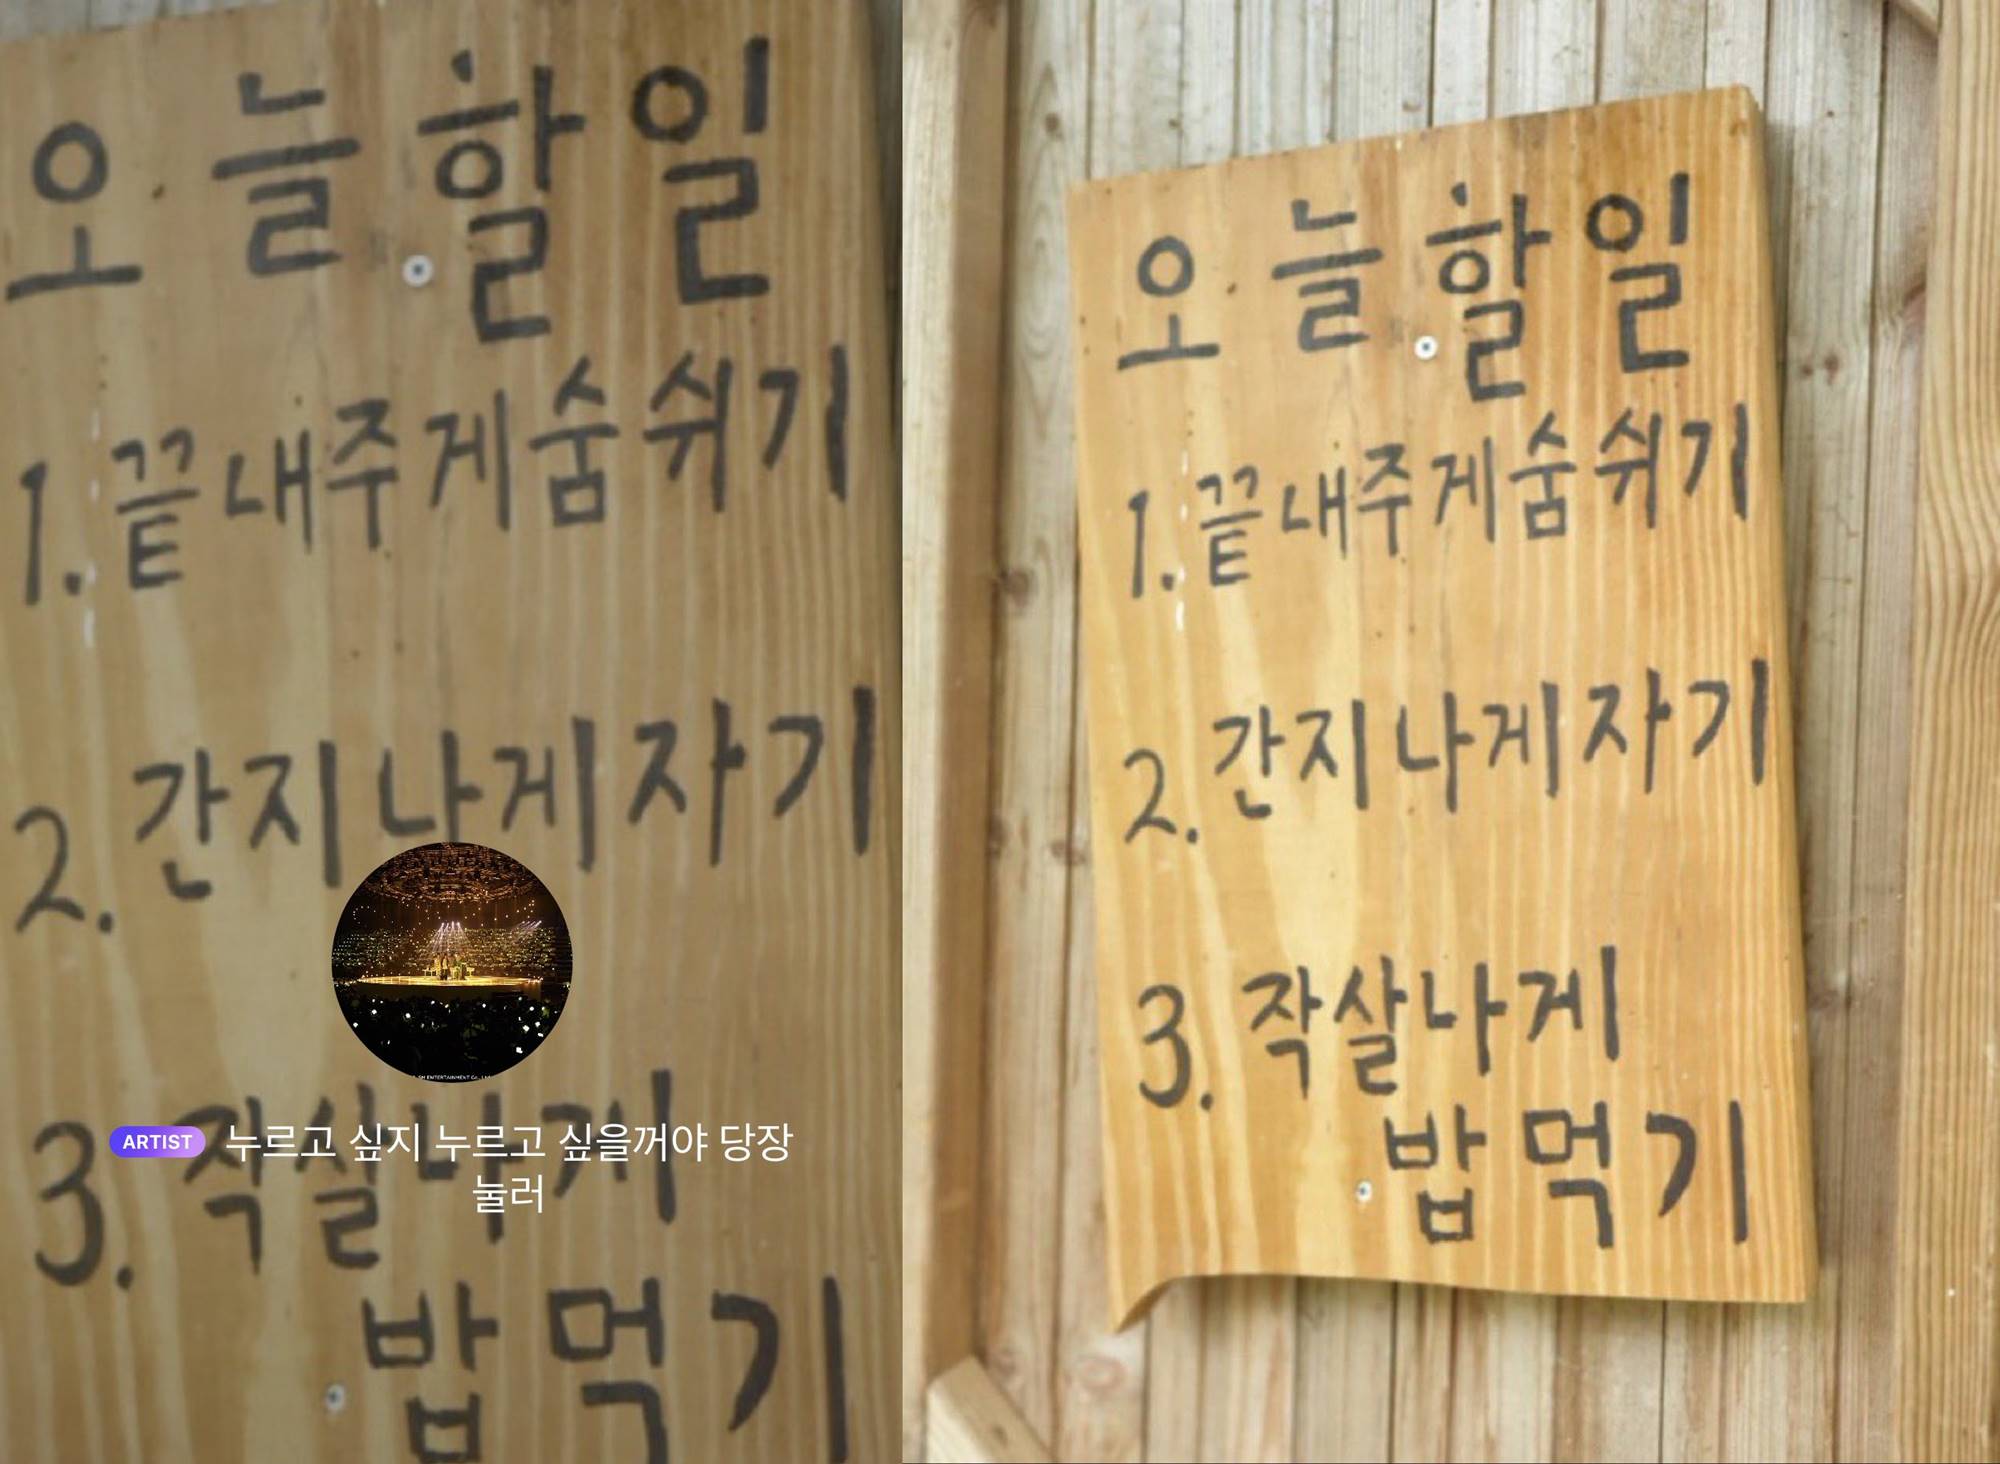 오늘 할일
1. 끝내주게숨쉬기
2. 간지나게자기
ENTERTAINMENT Co.,
ARTIST 누르고 싶지 누르고 싶을꺼야 당장
눌러
3. 작살나게
밥먹기
오늘할일
1. 끝내주게숨쉬기
2. 간지나게자기
3. 작살나게
밥먹기